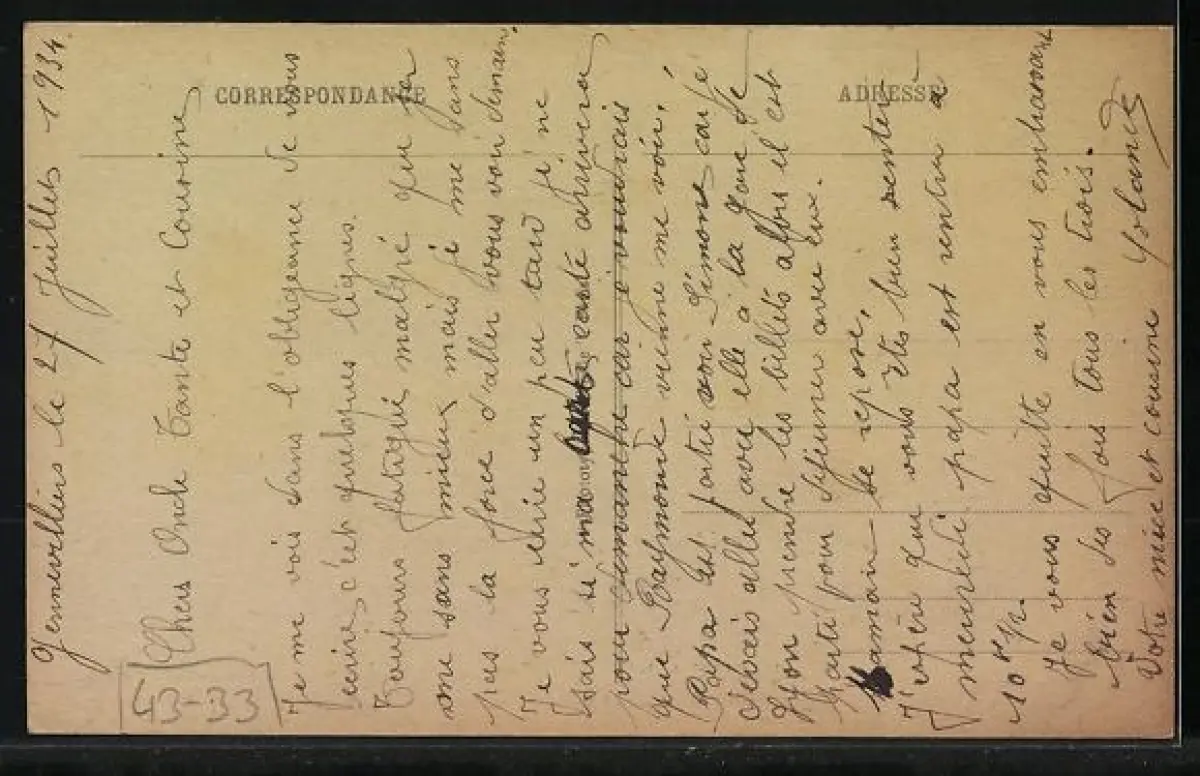 CORRESPONDANCE
ADRESSE
Gennevilliers le 27 Juillets 1934.
53-33
Chers Oncle Tante et Cousine
Je me vois dans l'obligeance de vous
écrire, c'est quelques lignes.
Toujours fatigué malgré que sa
va sans mieux mais je me sans
pas la force d'aller vous voir demain.
Je vous écrie un peu tard je ne
sais si ma carte arrivera
pour demantin car j'ouvrais
que Raymonde vienne me voir.
Papa est partie voir Simone car je
devais aller avec elle à la gare de
Lyon prendre les billets alors il est
parti pour déjeuner avec eux.
Maman se repose.
J'espère que vous êtes bien rentrer
mercredi papa est rentrer à
10 h 1/2.
Je vous quitte en vous embrassant
bien des fois tous les trois.
Votre nièce et cousine Yolande